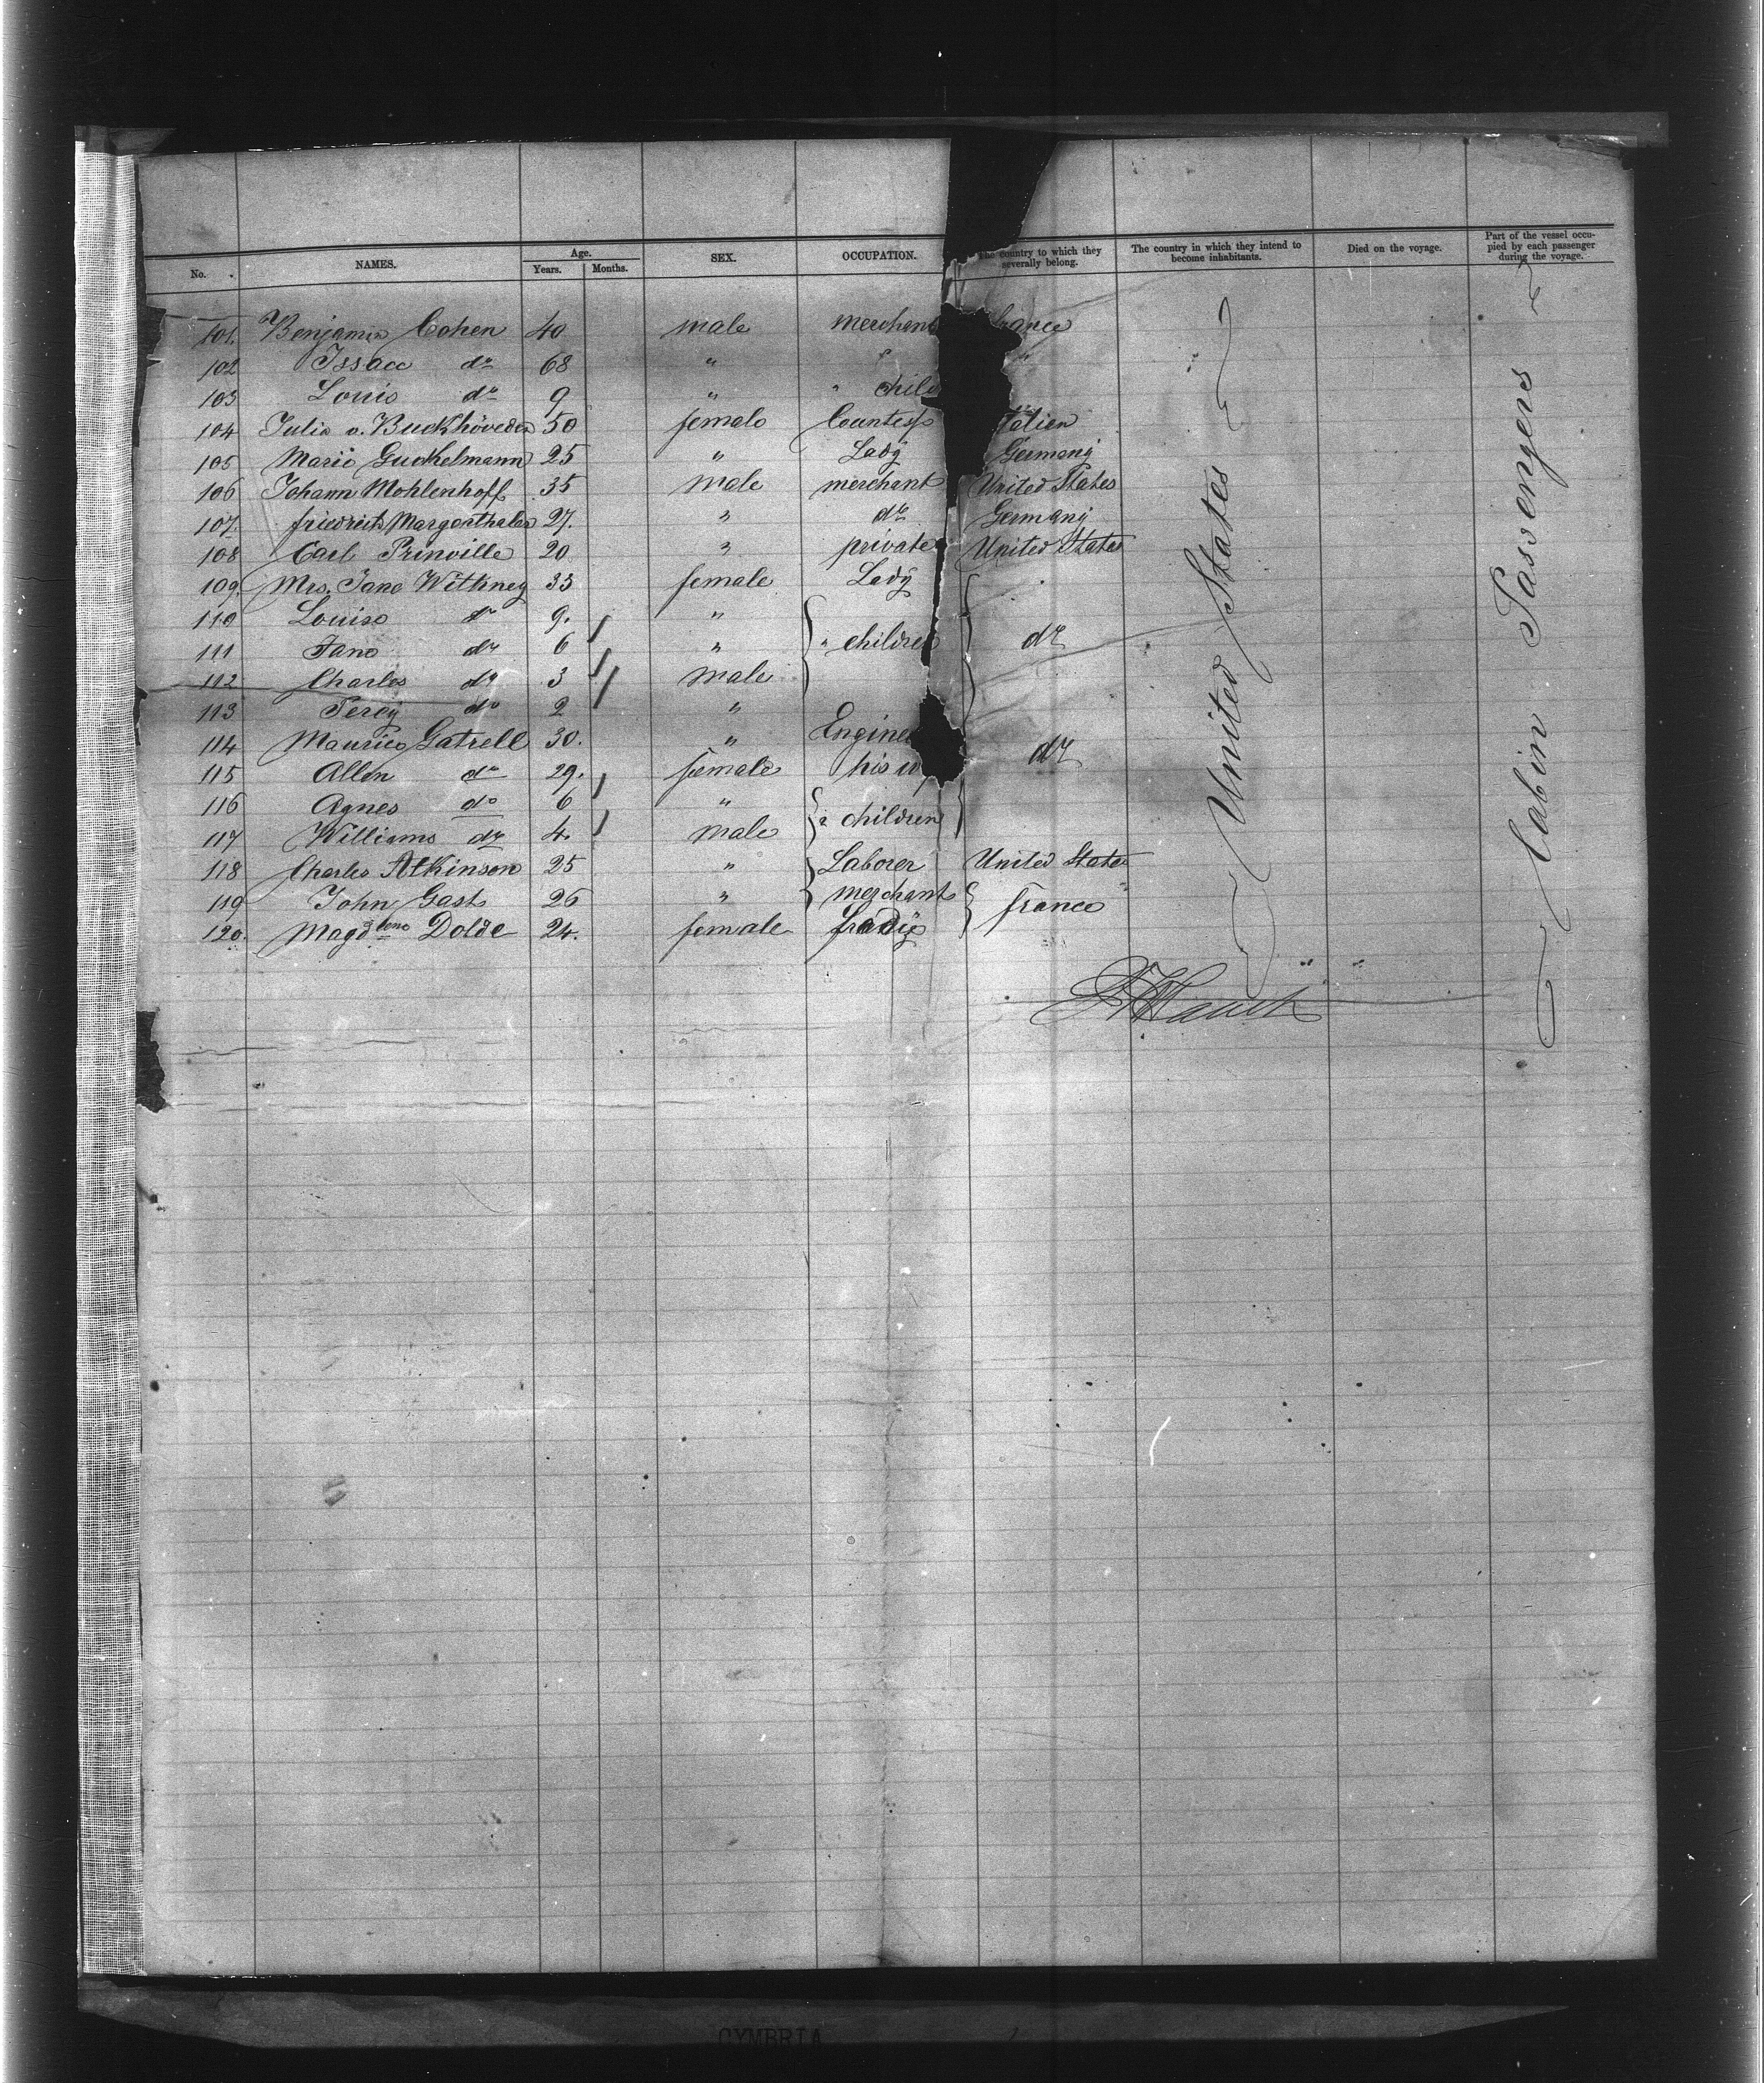 No. NAMES. Age. Years. Months. SEX. OCCUPATION. The country to which they severally belong. The country in which they intend to become inhabitants. Died on the voyage. Part of the vessel occupied by each passenger during the voyage.
101. Benjamin Cohen 40 male merchant france
102 Issacc do 68 " " "
103 Louis do 9 " " chil
104 Julia v. Buckhöveden 50 female Countess talien
105 Marie Guckelmann 25 " Lady Germany
106 Johann Mohlenhoff 35 male merchant United States
107. friedrich Margenthaler 27. " do Germany
108 Carl Prinville 20 " private United States
109. Mrs. Jane Withney 33 female Lady
110 Louise do 9. "
111 Jane do 6 " " children do
112 Charles do 3 male
113 Percy do 2 "
114 Maurice Gatrell 30. " Engine do
115 Allen do 29. female his w
116 Agnes do 6 "
117 Williams do 4. male children
118 Charles Atkinson 25 " Laborer United States
119 John Gast 26 " merchant france
120. Magdalene Dolde 24. female Lady
United States
Cabin Passengers
CYMBRIA